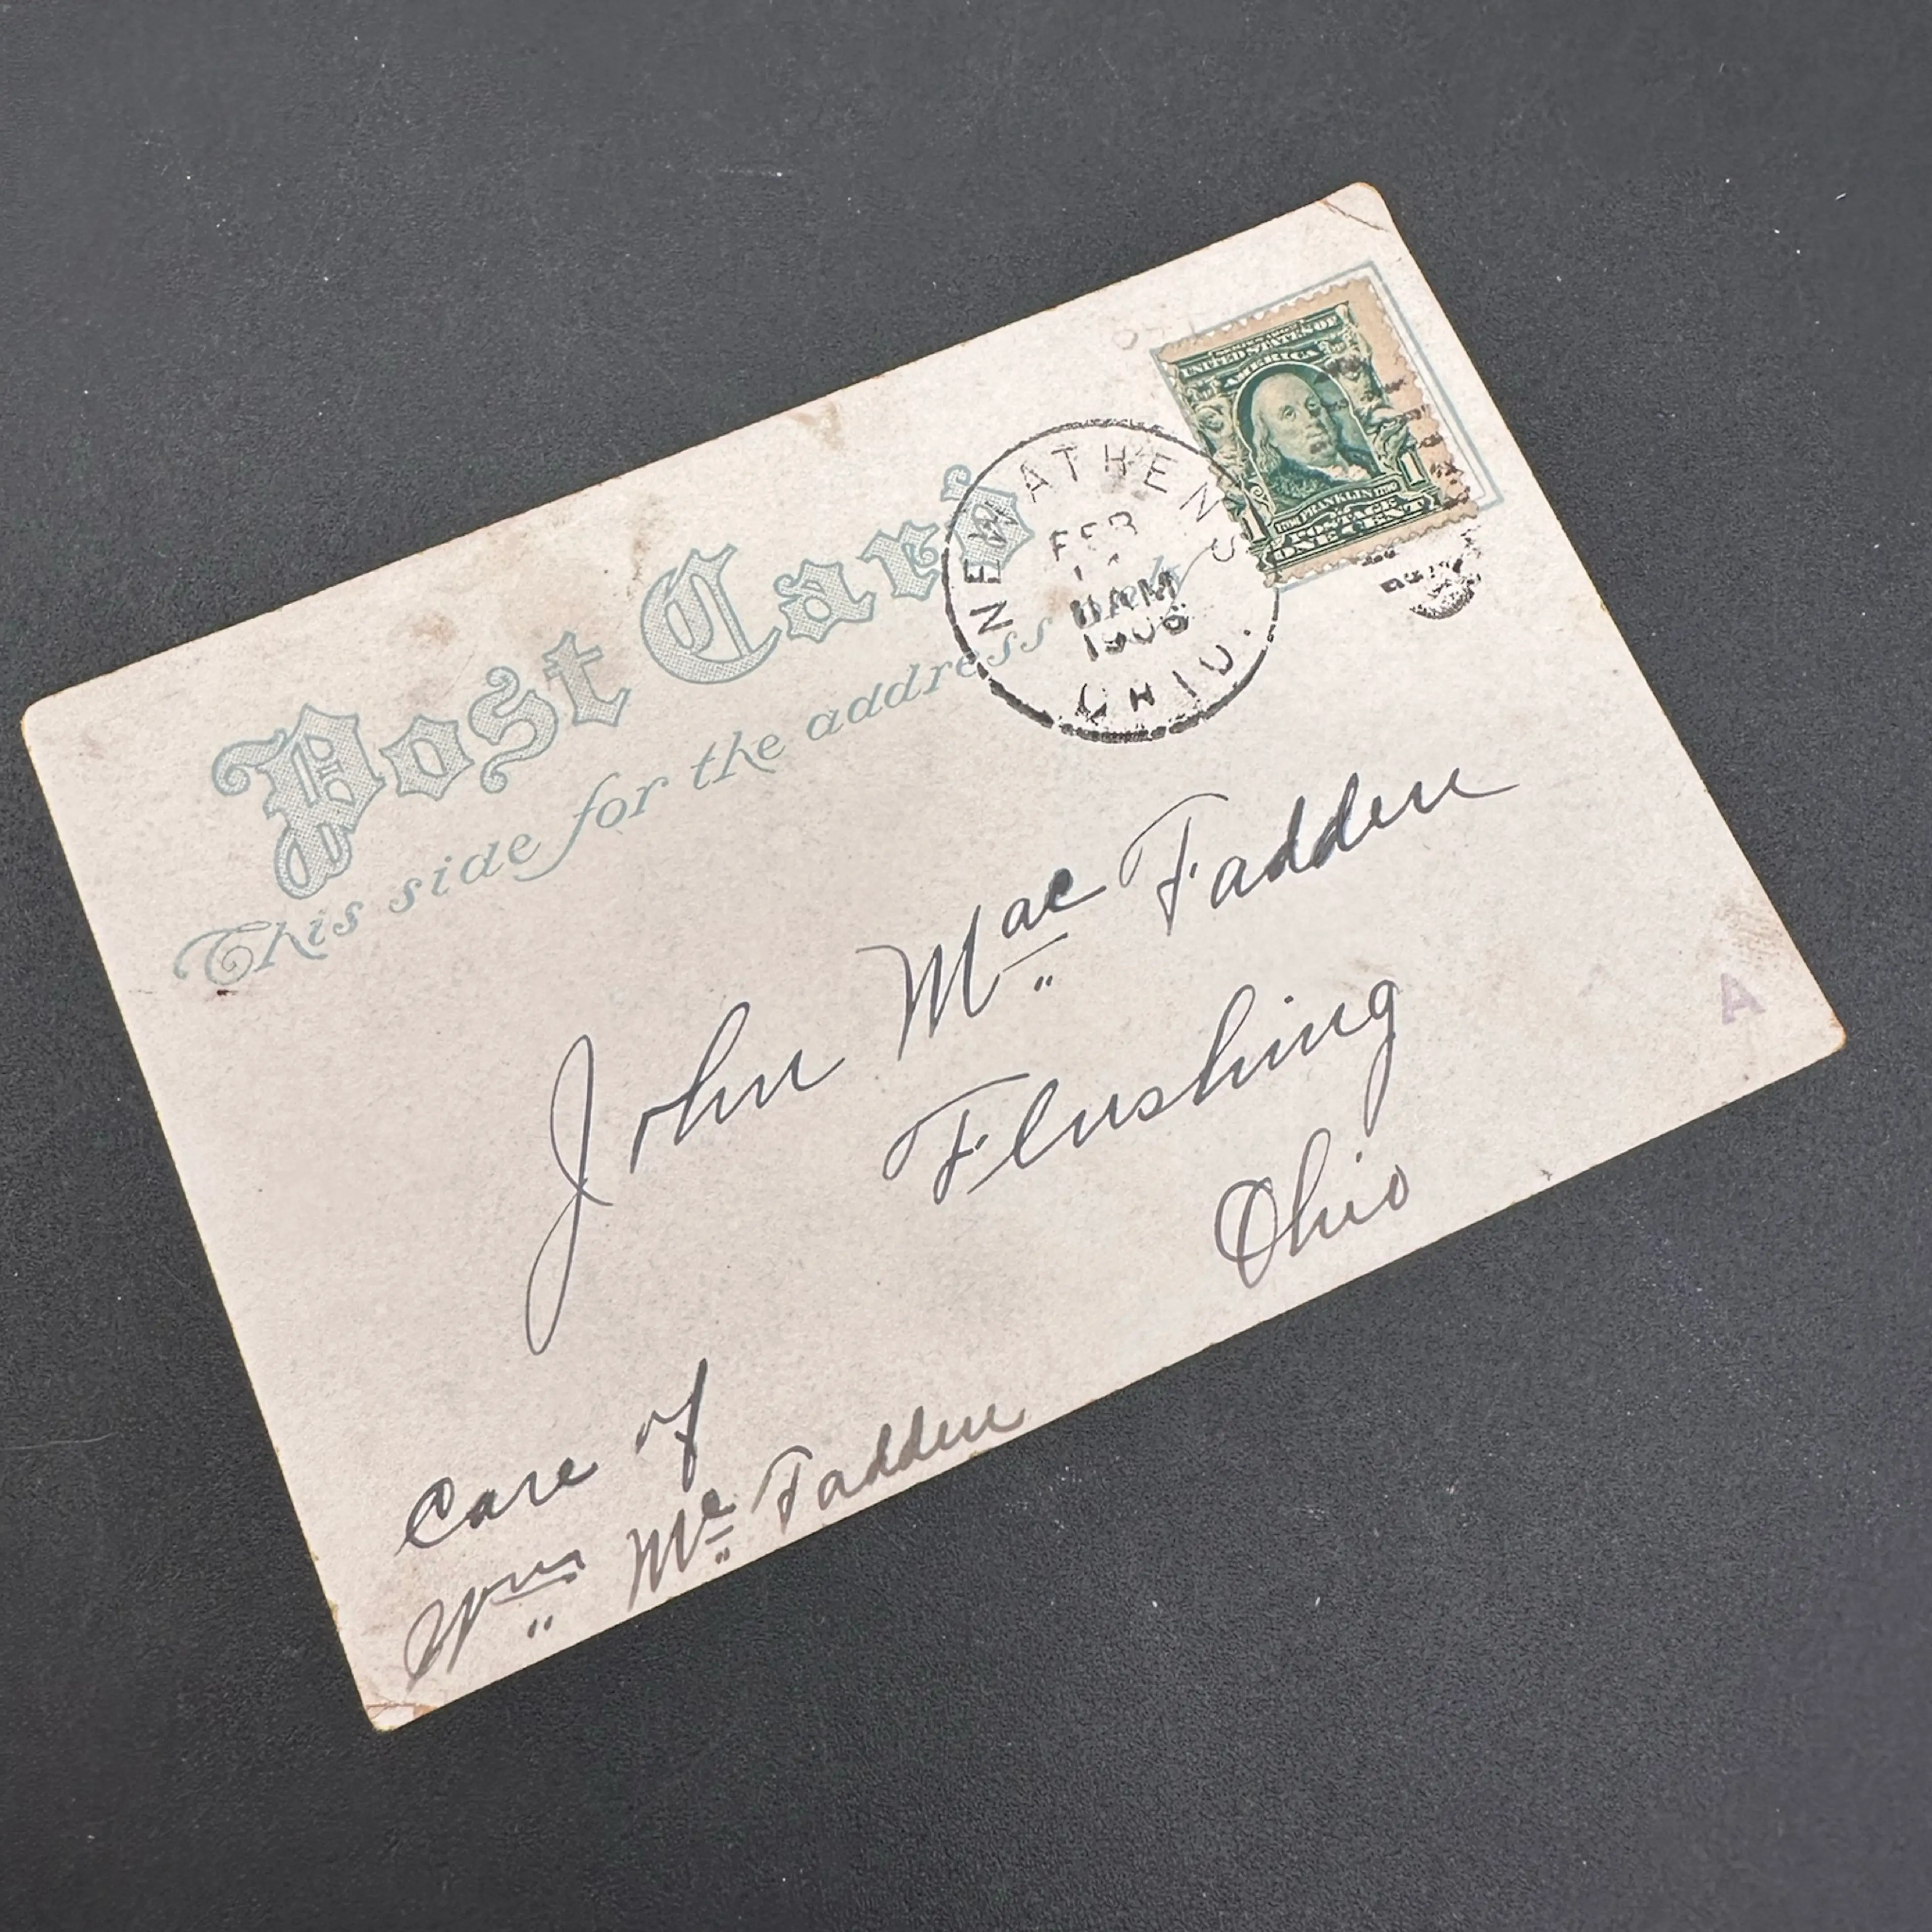 Post Card
This side for the address only
NEW ATHENS
FEB
11 AM
1906
OHIO.
UNITED STATES OF
AMERICA
1706 FRANKLIN 1790
1 1
POSTAGE
ONE CENT
John Mac Fadden
Flushing
Ohio
A
Care of
Wm Mc Fadden